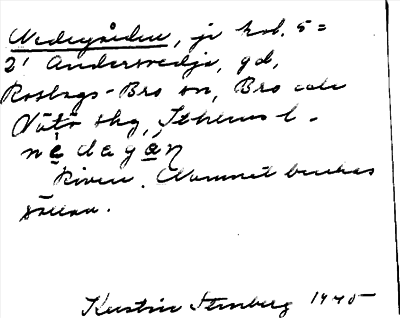 Nedergården, jr kol. 5 =
2' Andersvedja, gd,
Roslags-Bro sn, Bro och
Vätö skg, Sthlms l.
nèdagạ̄ṇ
Riven. Namnet brukas
sällan.
Kerstin Stenberg 1945